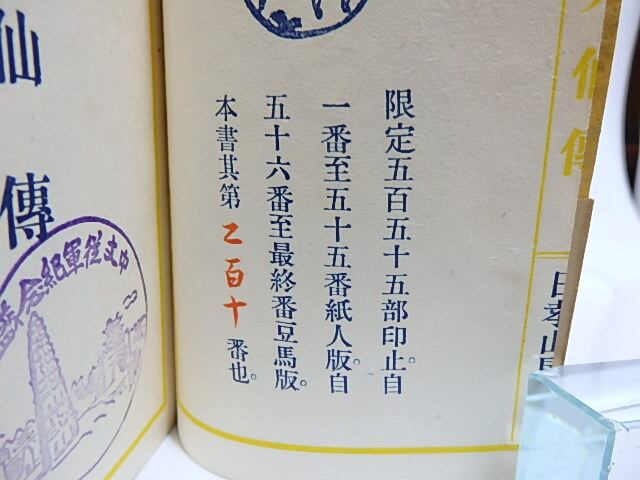 限定五百五十五部印止。自
一番至五十五番紙人版。自
五十六番至最終番豆馬版。
本書其第乙百十番也。
仙
傳
仙傳